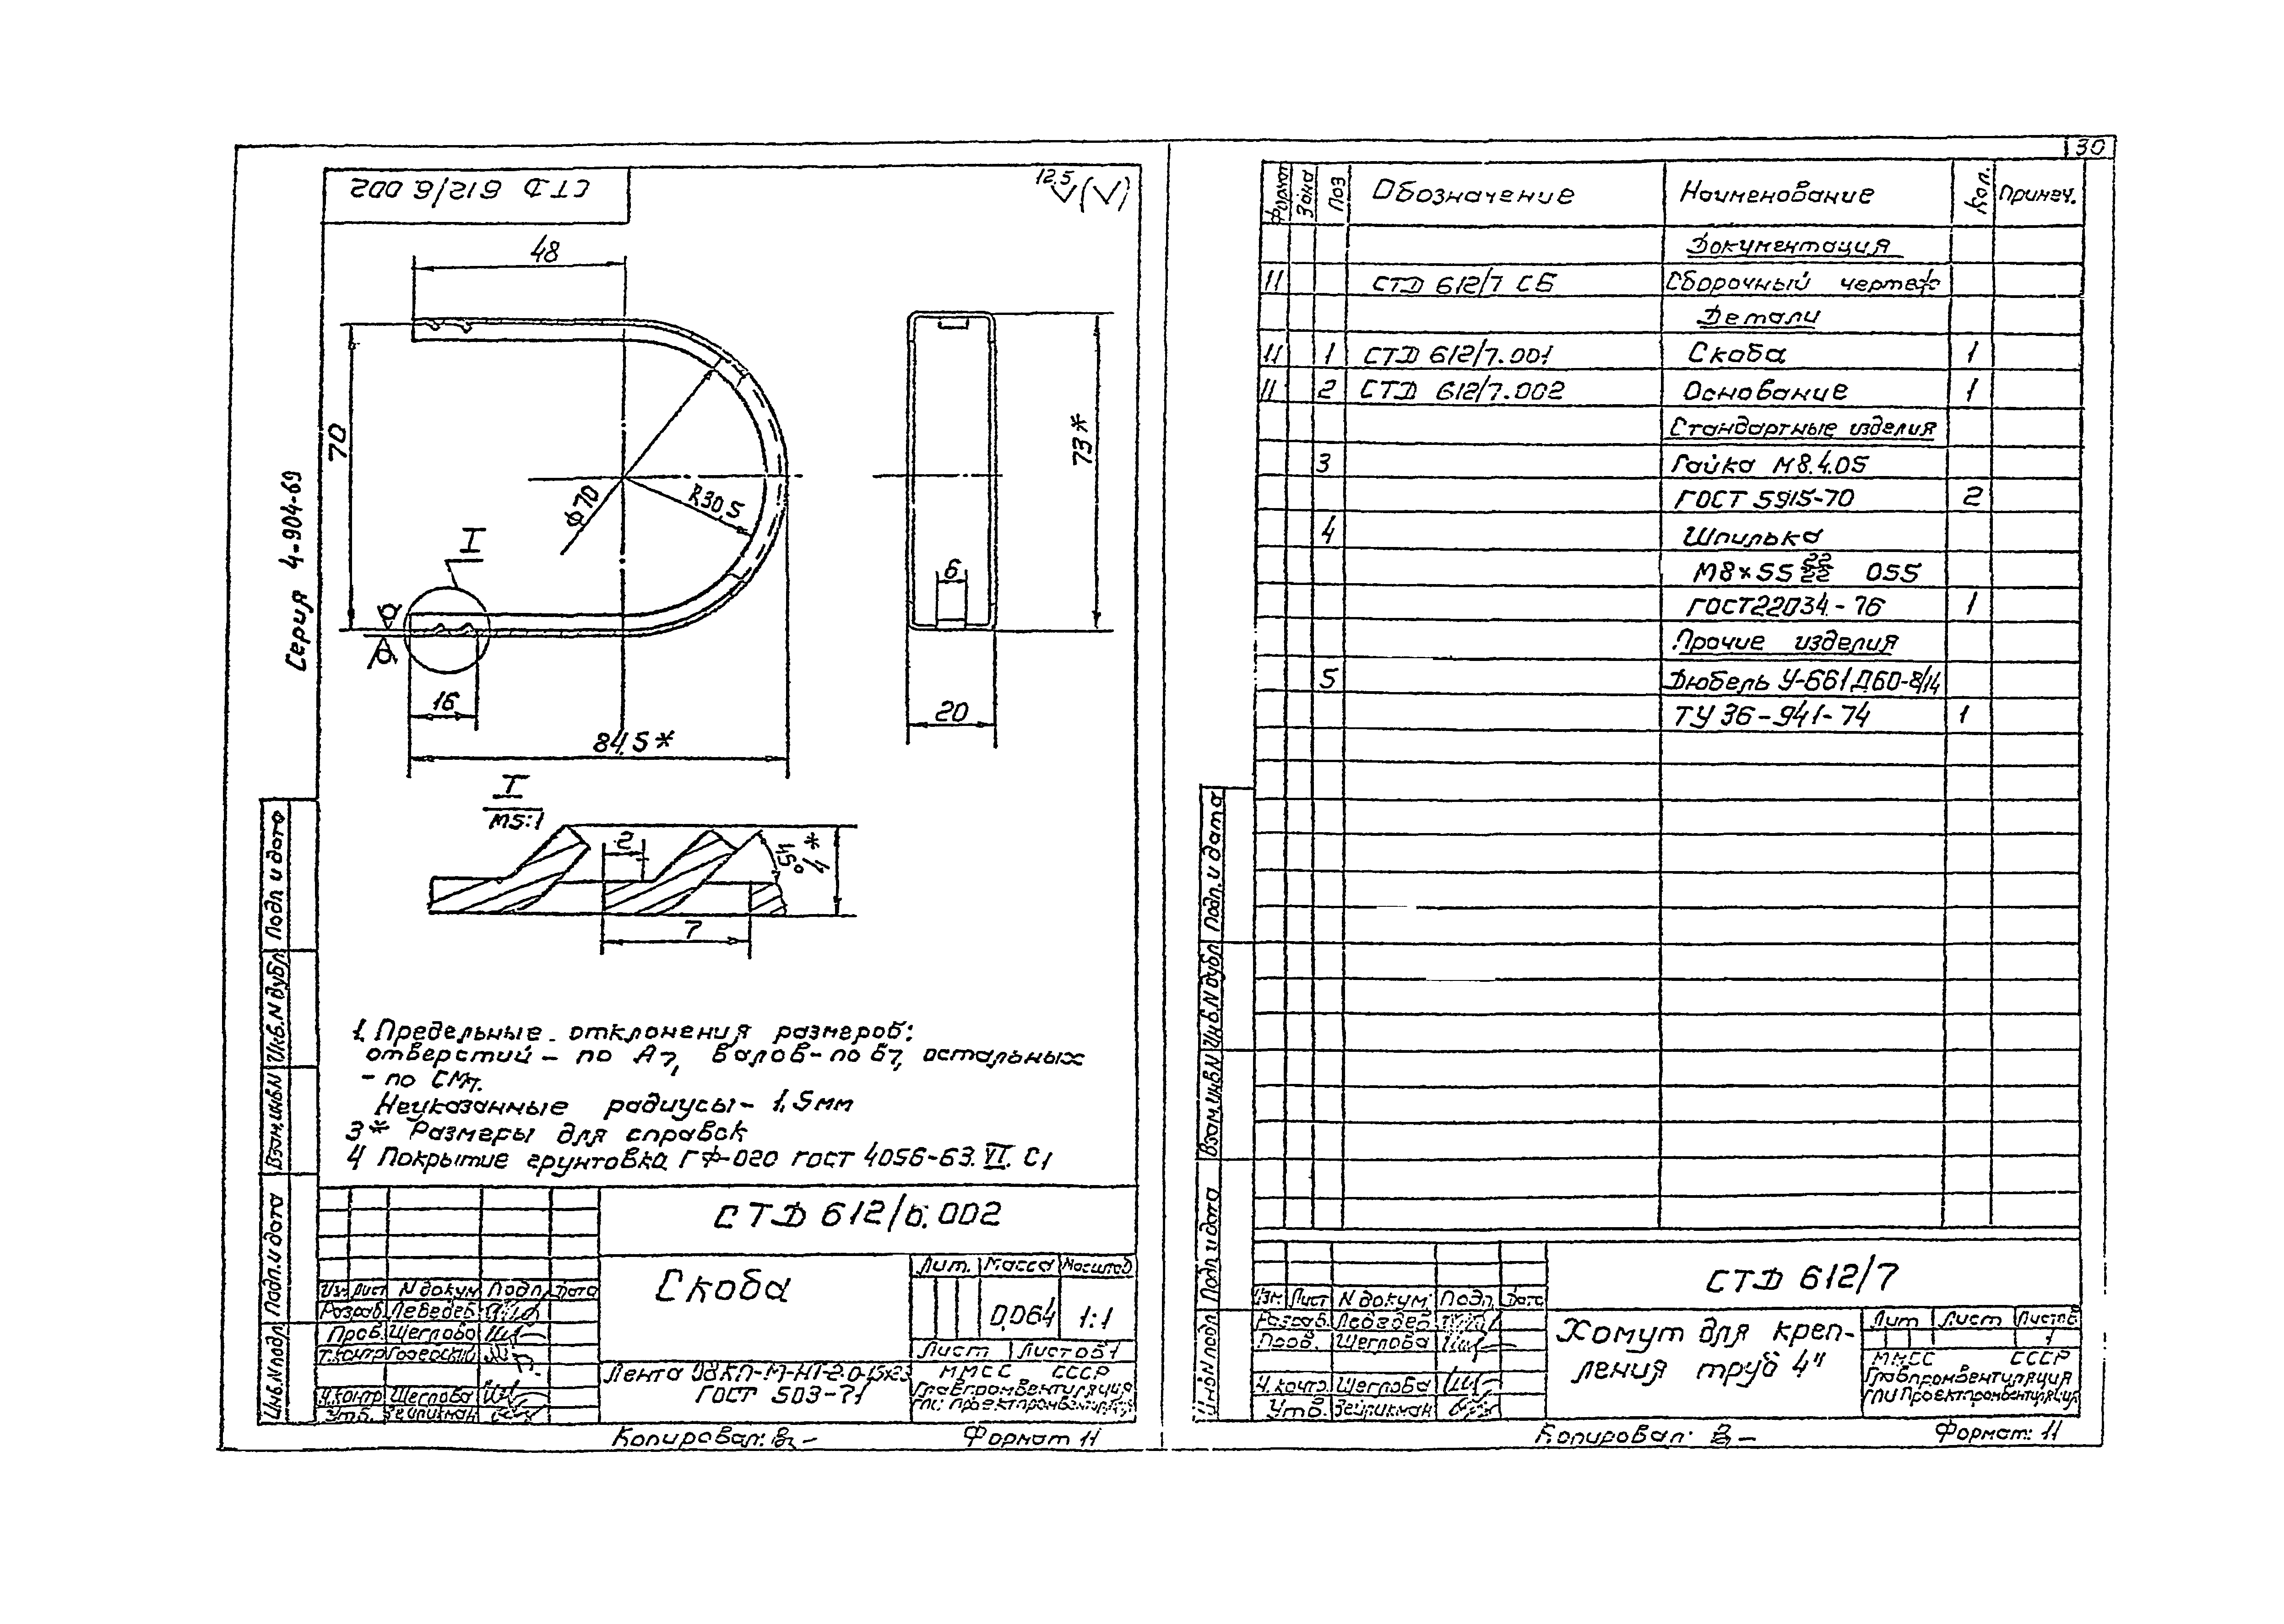 30
СТД 612/6 002
12,5
Серия 4-904-69
48
70
ф70
R30,5
I
16
84,5*
73*
6
20
I
М5:1
2
45°
4*
7
1. Предельные отклонения размеров:
отверстий - по А7, валов - по В7, остальных
- по СМ7.
Неуказанные радиусы - 1,5мм
3* Размеры для справок
4 Покрытие грунтовка ГФ-020 гост 4056-63. VI. С1
Подп. и дата
Инв.N дубл
Взам.инв.N
Подп. и дата
Инв.N подл
СТД 612/6.002
Изм Лист N докум Подп. Дата
Разраб. Лебедев
Пров. Щеглова
Т.контр
Н.контр Щеглова
Утв. Зейликман
Скоба
Лит. Масса Масштаб
0,064 1:1
Лист Листов 1
Лента 08КП-М-НТ-2.0-15х23
ГОСТ 503-71
ММСС СССР
Главпромвентиляция
ГПИ Проектпромвентиляция
Копировал:
Формат 11
Формат Зона Поз Обозначение Наименование Кол. Примеч.
Документация
11 СТД 612/7 СБ Сборочный чертеж
Детали
11 1 СТД 612/7.001 Скоба 1
11 2 СТД 612/7.002 Основание 1
Стандартные изделия
3 Гайка М8.4.05
ГОСТ 5915-70 2
4 Шпилька
М8×55 22/22 055
ГОСТ22034-76 1
Прочие изделия
5 Дюбель У-661 Д60-8/14
ТУ 36-941-74 1
Подп. и дата
Инв.N дубл
Взам.инв.N
Подп. и дата
Инв.N подл.
СТД 612/7
Изм. Лист N докум. Подп. Дата
Разраб. Лебедев
Пров. Щеглова
Н.контр. Щеглова
Утв. Зейликман
Хомут для креп-
ления труб 4"
Лит Лист Листов
1
ММСС СССР
Главпромвентиляция
ГПИ Проектпромвентиляция
Копировал:
Формат: 11